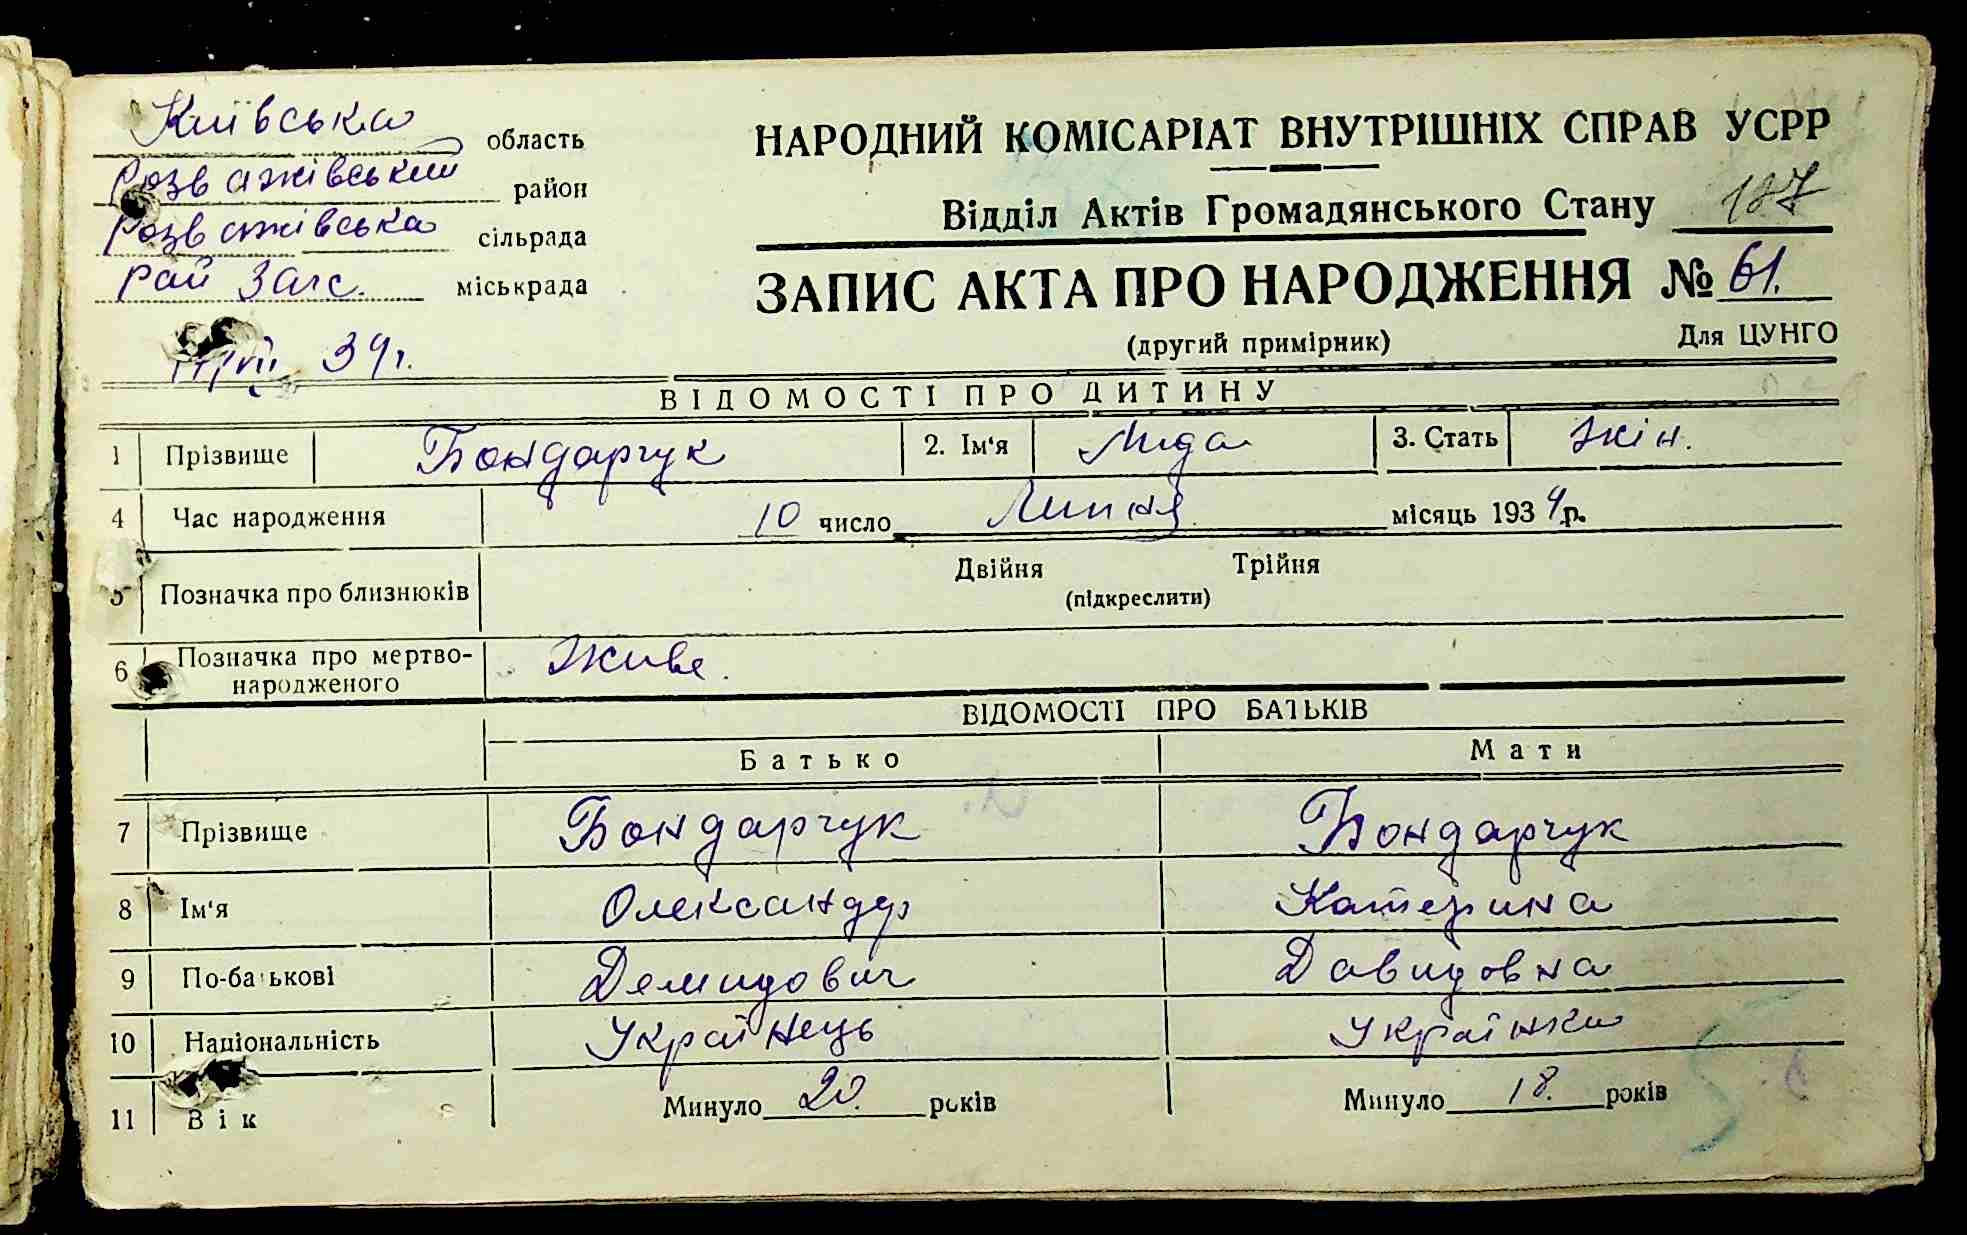 Київська область
Розважівський район
Розважівська сільрада
Рай Загс. міськрада
34 г.
НАРОДНИЙ КОМІСАРІАТ ВНУТРІШНІХ СПРАВ УСРР
Відділ Актів Громадянського Стану 187
ЗАПИС АКТА ПРО НАРОДЖЕННЯ № 61.
(другий примірник) Для ЦУНГО
ВІДОМОСТІ ПРО ДИТИНУ
1 Прізвище Бондарчук 2. Ім'я Лида 3. Стать жін.
4 Час народження 10 число Липня місяць 1934 р.
5 Позначка про близнюків Двійня Трійня
(підкреслити)
6 Позначка про мертво-
народженого Живе.
ВІДОМОСТІ ПРО БАТЬКІВ
Батько Мати
7 Прізвище Бондарчук Бондарчук
8 Ім'я Олександр Катерина
9 По-батькові Демидович Давидовна
10 Національність Українець Українка
11 Вік Минуло 20. років Минуло 18. років